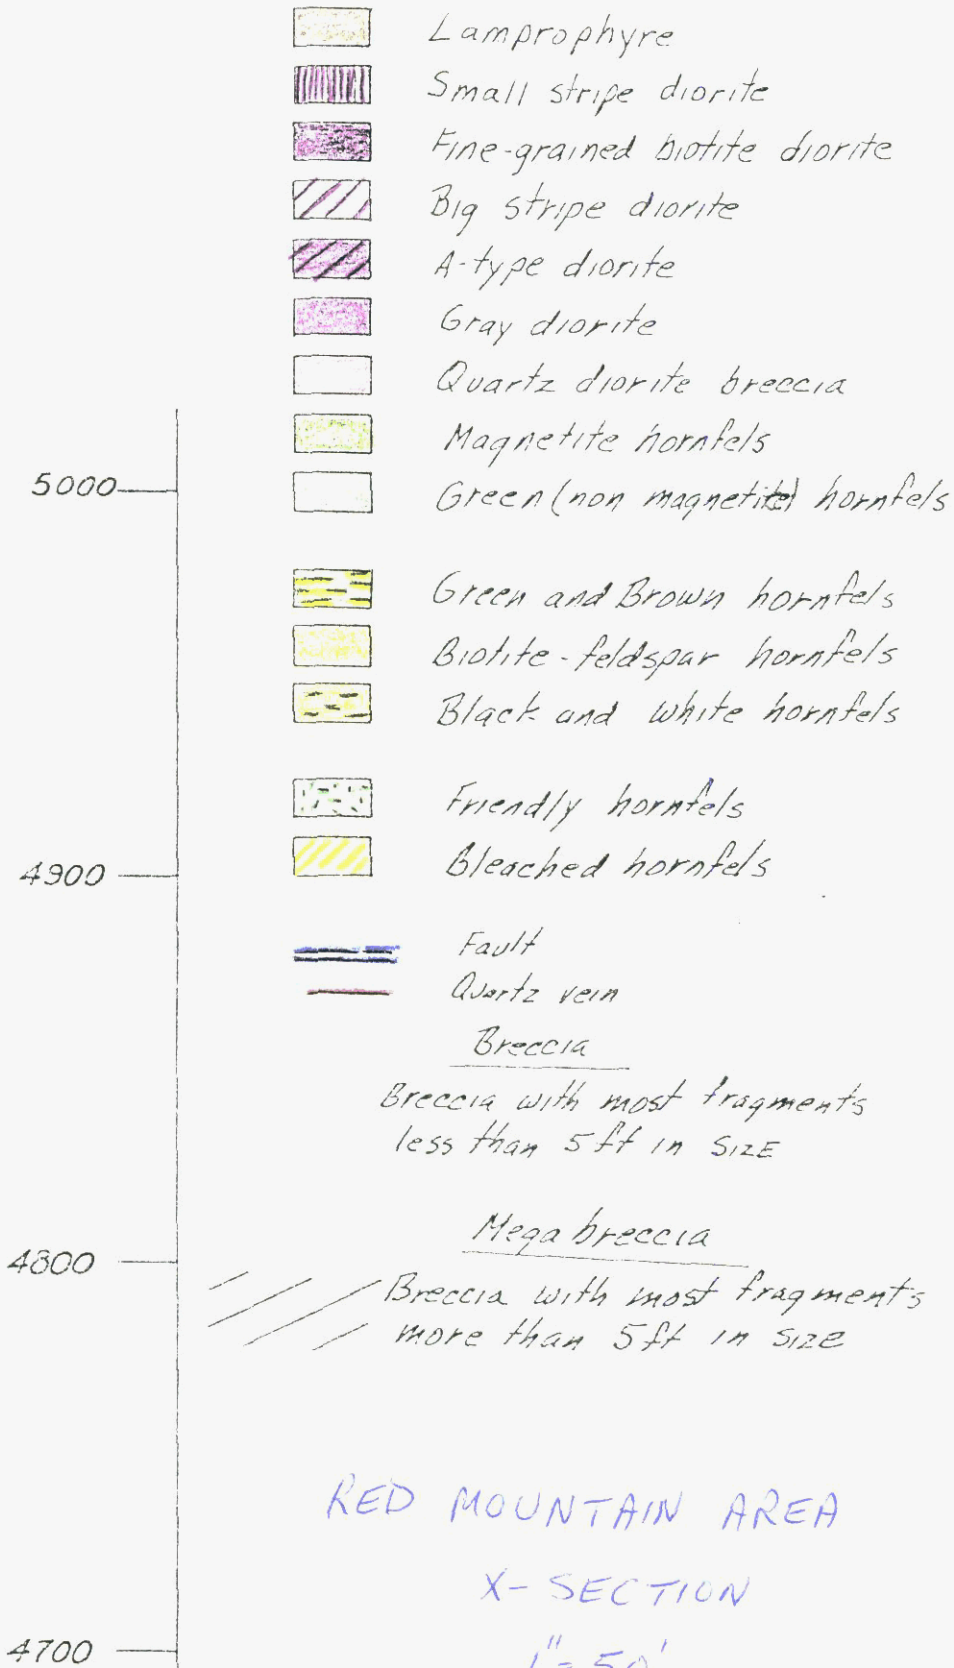 Lamprophyre
Small stripe diorite
Fine-grained biotite diorite
Big stripe diorite
A-type diorite
Gray diorite
Quartz diorite breccia
Magnetite hornfels
5000
Green (non magnetite) hornfels
Green and Brown hornfels
Biotite-feldspar hornfels
Black and white hornfels
Friendly hornfels
4900
Bleached hornfels
Fault
Quartz vein
Breccia
Breccia with most fragments
less than 5 ft in SIZE
Mega breccia
4800
Breccia with most fragments
more than 5 ft in size
RED MOUNTAIN AREA
X-SECTION
4700
1"=50'